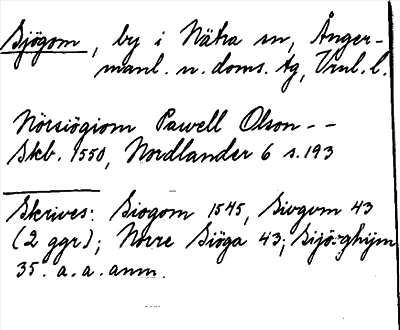 Sjögom, by i Nätra sn, Ånger-
manl. n. doms. tg, Vrnl. l.
Nörsiögiom Pawell Olson - -
Skb. 1550, Nordlander 6 s. 193
Skrives: Siogom 1545, Siogvm 43
(2 ggr); Norre Siöga 43; Sijöghijm
35. a. a. anm.